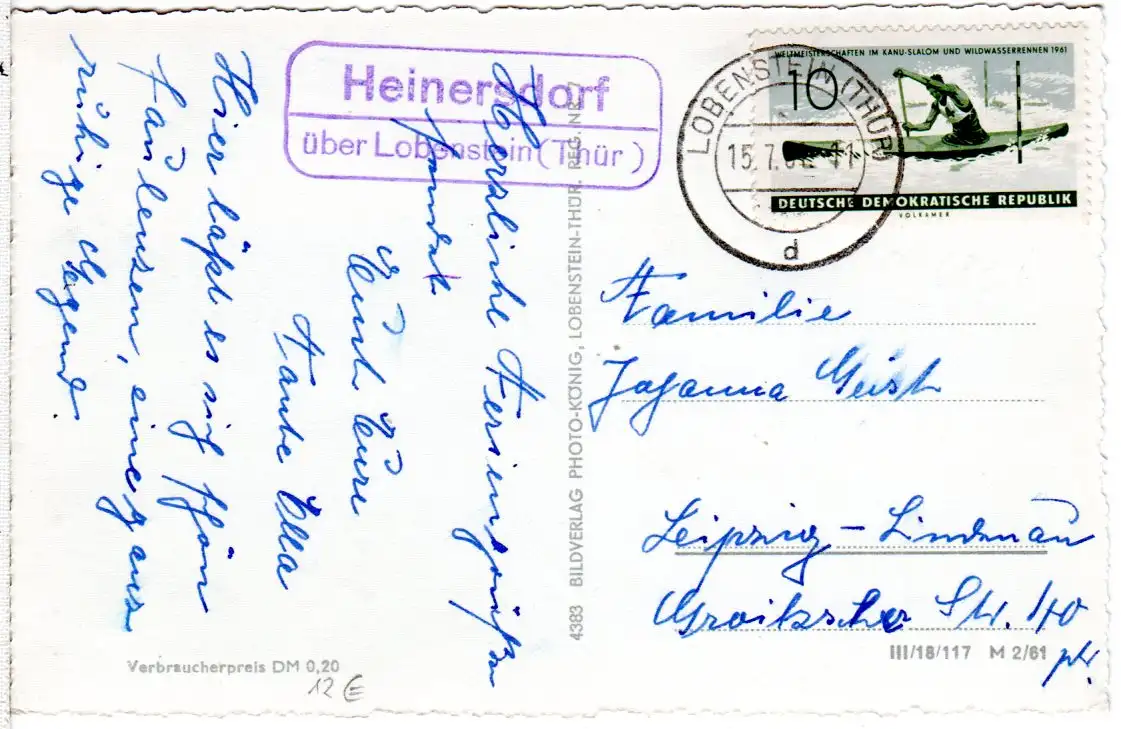 Heinersdorf
über Lobenstein (Thür)
WELTMEISTERSCHAFTEN IM KANU-SLALOM UND WILDWASSERRENNEN 1961
10
DEUTSCHE DEMOKRATISCHE REPUBLIK
VOLKAMER
LOBENSTEIN (THÜR)
15.7.61 11
d
Herzliche Feriengrüße
sendet
Euch Eure
Tante Ella
Hier läßt es sich schön
faulenzen, eine ganz
ruhige Gegend.
4383 BILDVERLAG PHOTO-KÖNIG, LOBENSTEIN-THÜR. REG. NL
Familie
Johanna Geist
Leipzig - Lindenau
Groitzscher Str.
ptr.
Verbraucherpreis DM 0,20
12 €
III/18/117 M 2/61